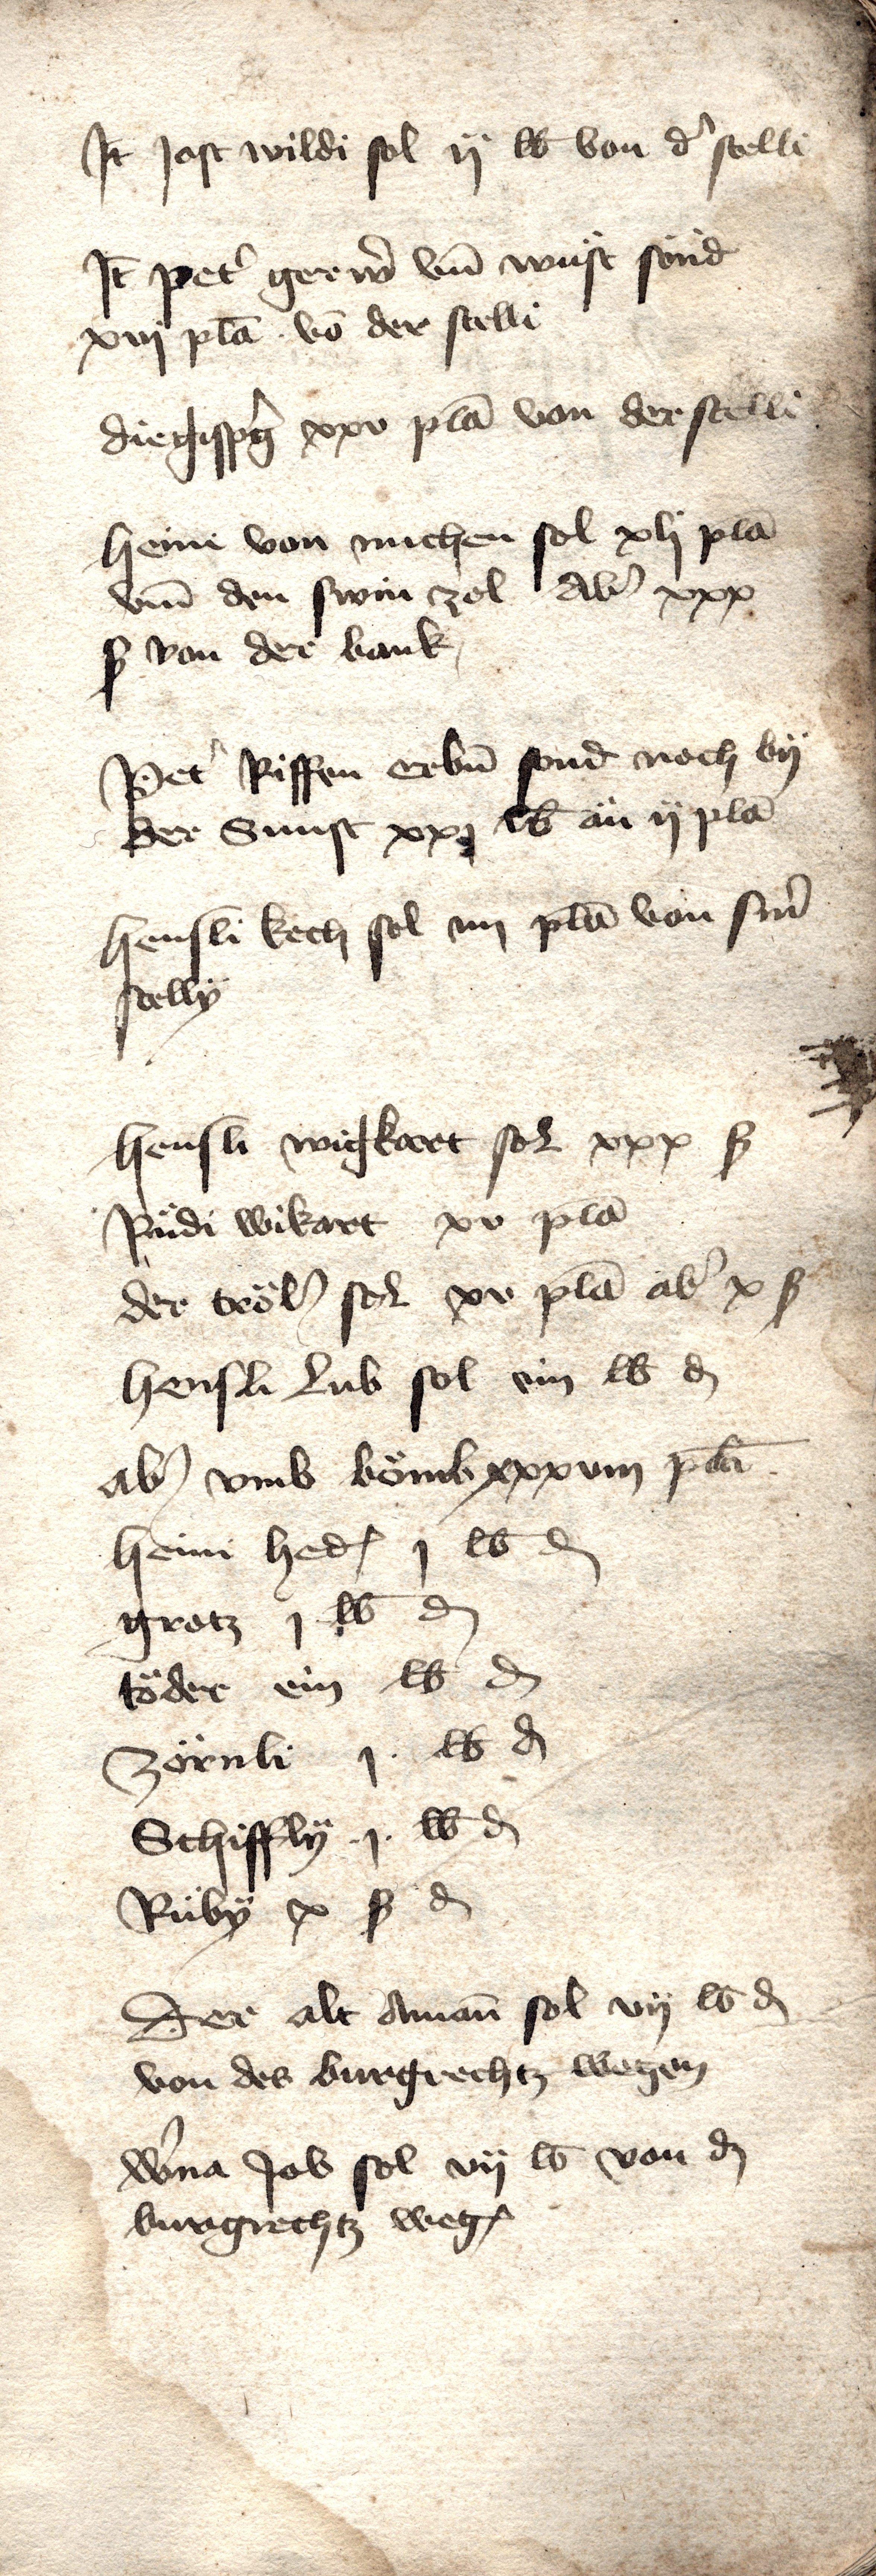 It Jost wildi sol ij lb von d' stelli
It pet' gerw' vm̄ wüst sönd
xvij pla . vō der stelli
die gisspg' xxv plā von der stelli
heini von michen sol xlj plā
vm̄ den swin zol Ab' xxx
ß von der bank
Pet' Riffen erbn̄ sond noch by
der Sunst xxj lb än ij plā
hensli kech sol iiij plā von sin'
stellÿ
hensli wigkart sol xxx ß
Rüdi wikart xv plā
der tröl' sol xv plā ab' x ß
hensli Lub sol ein lb d
ab' vmb bömb xxxviii plā
heini hed' j lb d
grotz j lb d
töder ein lb d
Zörnli j . lb d
Schifflÿ . j . lb d
Rübÿ x ß d
Der alt Aman̄ sol vij lb d
von des burgrechtz wegen
w'na Job sol vij lb von d
burgrechtz weg'